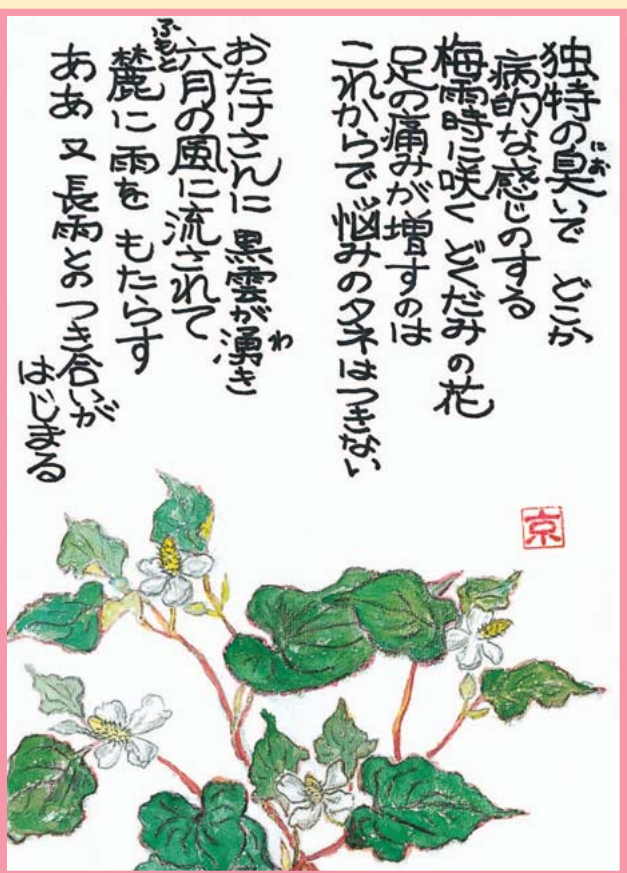 独特の臭いで どこか
にお
病的な感じのする
梅雨時に咲く どくだみの花
足の痛みが増すのは
これからで悩みのタネはつきない
おたけさんに 黒雲が湧き
わ
六月の風に流されて
麓に雨を もたらす
ふもと
ああ 又 長雨とのつき合いが
はじまる
京